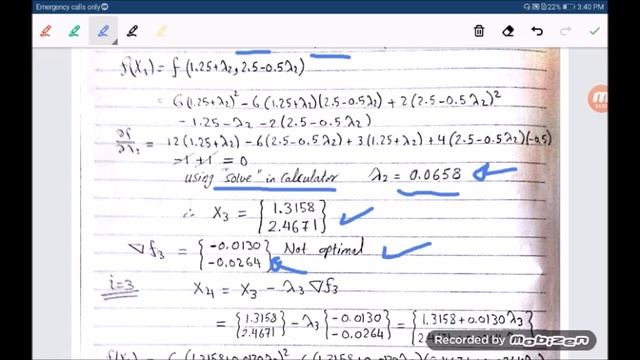 Emergency calls only 22% 3:40 PM
f(X₁) = f(1.25+λ₂, 2.5-0.5λ₂)
= 6(1.25+λ₂)² - 6(1.25+λ₂)(2.5-0.5λ₂) + 2(2.5-0.5λ₂)²
- 1.25 - λ₂ - 2(2.5-0.5λ₂)
∂f/∂λ₂ = 12(1.25+λ₂) - 6(2.5-0.5λ₂) + 3(1.25+λ₂) + 4(2.5-0.5λ₂)(-0.5)
-1 + 1 = 0
using "solve" in calculator λ₂ = 0.0658
∴ X₃ = {1.3158 2.4671}
∇f₃ = {-0.0130 -0.0264} Not optimal
i=3 X₄ = X₃ - λ₃ ∇f₃
= {1.3158 2.4671} - λ₃ {-0.0130 -0.0264} = {1.3158+0.0130λ₃
Recorded by MOBIZEN